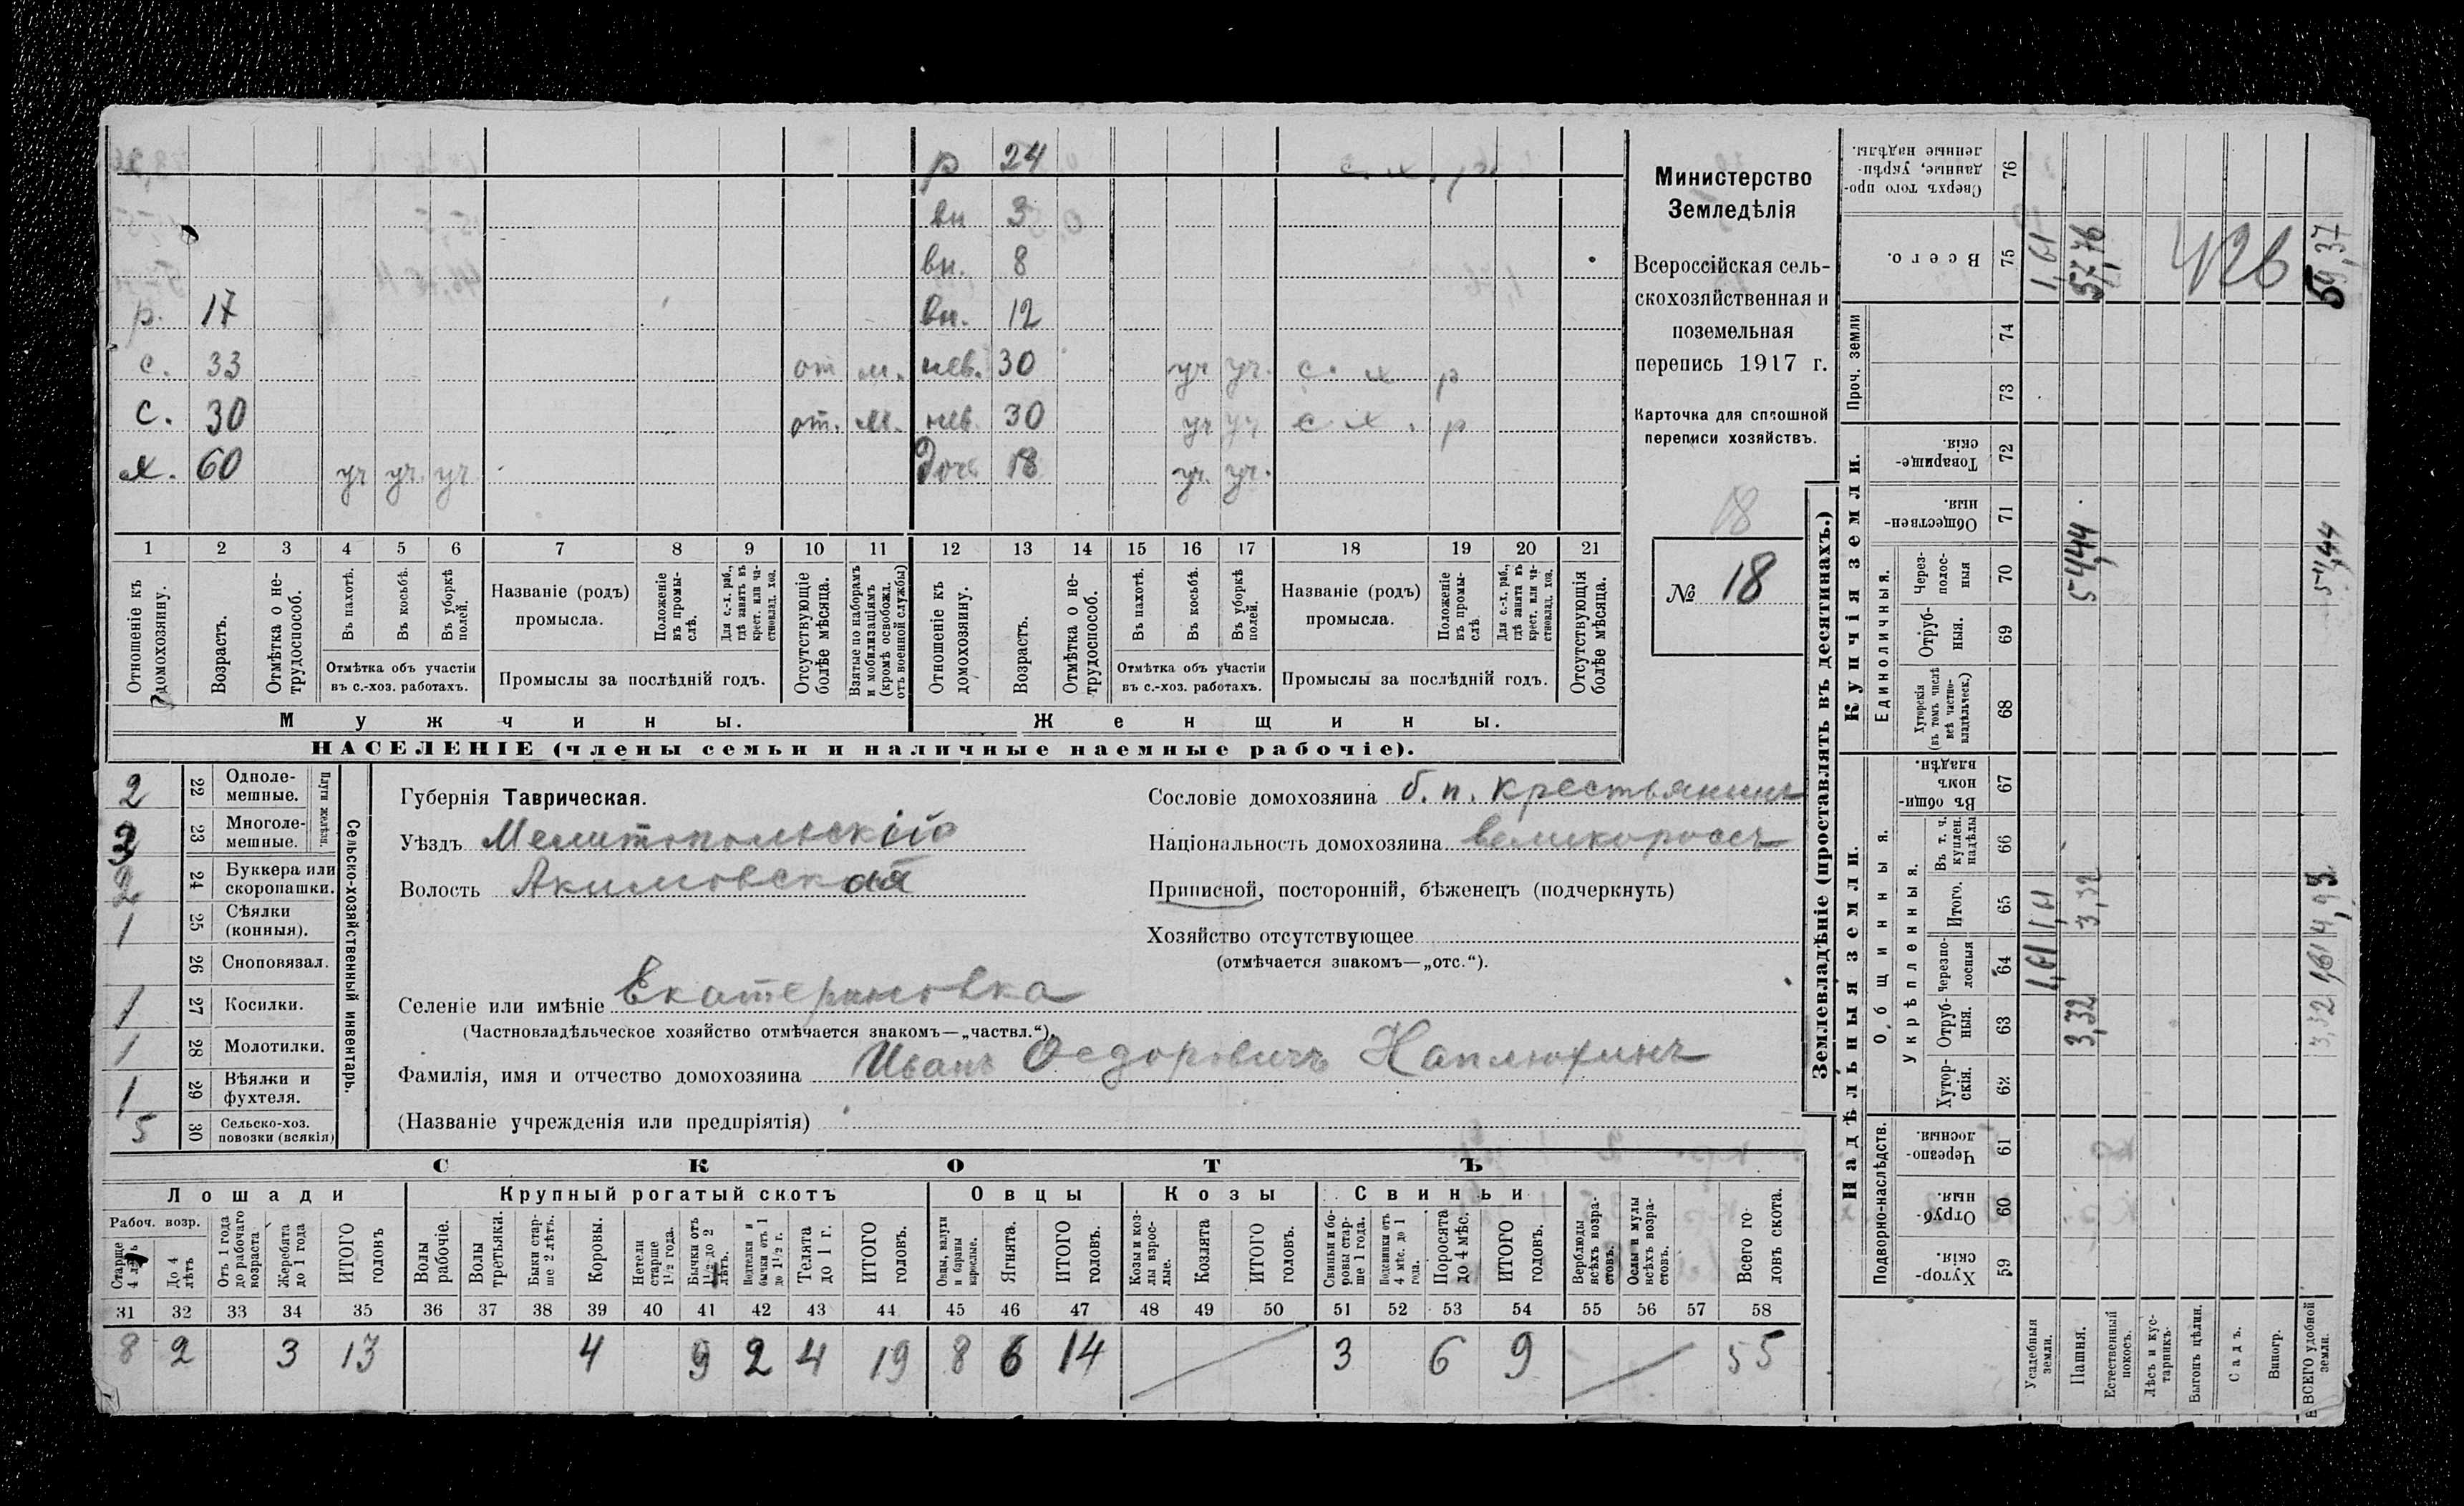 р 24 с. х. р.
вн 3
вн. 8
р. 17 вн. 12
с. 33 от м. нев. 30 уч уч. с. х р
с. 30 от. м. нев. 30 уч уч с. х. р
х. 60 уч уч. уч доч 18 уч. уч.
1 2 3 4 5 6 7 8 9 10 11 12 13 14 15 16 17 18 19 20 21
Отношеніе къ домохозяину.
Возрастъ.
Отмѣтка о не-
трудоспособ.
Въ пахотѣ.
Въ косьбѣ.
Въ уборкѣ
полей.
Отмѣтка объ участіи
въ с.-хоз. работахъ.
Названіе (родъ)
промысла.
Положеніе
въ промы-
слѣ.
Для с.-х. раб.,
гдѣ занятъ въ
крест. или ча-
стновлад. хоз.
Промыслы за послѣдній годъ.
Отсутствующіе
болѣе мѣсяца.
Взятые по наборамъ
и мобилизаціямъ
(кромѣ освобожд.
отъ военной службы)
Отношеніе къ
домохозяину.
Возрастъ.
Отмѣтка о не-
трудоспособ.
Въ пахотѣ.
Въ косьбѣ.
Въ уборкѣ
полей.
Отмѣтка объ участіи
въ с.-хоз. работахъ.
Названіе (родъ)
промысла.
Положеніе
въ промы-
слѣ.
Для с.-х. раб.,
гдѣ занята въ
крест. или ча-
стновлад. хоз.
Промыслы за послѣдній годъ.
Отсутствующія
болѣе мѣсяца.
Мужчины.
Женщины.
НАСЕЛЕНІЕ (члены семьи и наличные наемные рабочіе).
Министерство
Земледѣлія
Всероссійская сель-
скохозяйственная и
поземельная
перепись 1917 г.
Карточка для сплошной
переписи хозяйствъ.
18
№ 18
2 22 Одноле-
мешные.
3 23 Многоле-
мешные.
Плуги желѣзн.
2 24 Буккера или
скоропашки.
1 25 Сѣялки
(конныя).
26 Сноповязал.
1 27 Косилки.
1 28 Молотилки.
1 29 Вѣялки и
фухтеля.
5 30 Сельско-хоз.
повозки (всякія)
Сельско-хозяйственный инвентарь.
Губернія Таврическая.
Уѣздъ Мелитопольскій
Волость Акимовская
Сословіе домохозяина б. п. крестьянинъ
Національность домохозяина великороссъ
Приписной, посторонній, бѣженецъ (подчеркнуть)
Хозяйство отсутствующее
(отмѣчается знакомъ—„отс.“).
Селеніе или имѣніе Екатериновка
(Частновладѣльческое хозяйство отмѣчается знакомъ—„частвл.“).
Фамилія, имя и отчество домохозяина Иванъ Федоровичъ Каплюхинъ
(Названіе учрежденія или предпріятія)
СКОТЪ
Лошади
Рабоч. возр.
Старше
4 лѣтъ
До 4
лѣтъ
Отъ 1 года
до рабочаго
возраста
Жеребята
до 1 года
ИТОГО
головъ
Крупный рогатый скотъ
Волы
рабочіе.
Волы
третьяки.
Быки стар-
ше 2 лѣтъ.
Коровы.
Нетели
старше
1½ года.
Бычки отъ
1½ до 2
лѣтъ.
Подтелки и
бычки отъ 1
до 1½ г.
Телята
до 1 г.
ИТОГО
головъ.
Овцы
Овцы, валухи
и бараны
взрослые.
Ягнята.
ИТОГО
головъ.
Козы
Козы и коз-
лы взрос-
лые.
Козлята
ИТОГО
головъ.
Свиньи
Свиньи и бо-
ровы стар-
ше 1 года.
Подсвинки отъ
4 мѣс. до 1
года.
Поросята
до 4 мѣс.
ИТОГО
головъ.
Верблюды
всѣхъ возра-
стовъ.
Ослы и мулы
всѣхъ возра-
стовъ.
Всего го-
ловъ скота.
31 32 33 34 35 36 37 38 39 40 41 42 43 44 45 46 47 48 49 50 51 52 53 54 55 56 57 58
8 2 3 13 4 9 2 4 19 8 6 14 3 6 9 55
Землевладѣніе (проставлять въ десятинахъ.)
Сверхъ того про-
данные, укрѣп-
ленные надѣлы.
76
Всего.
75 1,61 57,76 42в 59,37
Проч. земли
74
73
Купчія земли.
Товарище-
скія.
72
Обществен-
ныя.
71
Единоличныя.
Через-
полос-
ныя
70 54,44 54,44
Отруб-
ныя.
69
Хуторскія
(въ томъ числѣ
всѣ частно-
владѣльческ.)
68
Надѣльныя земли.
Общинныя.
Въ общин-
номъ
владѣн.
67
Укрѣпленныя.
Въ т. ч.
куплен.
надѣлы
66
Итого.
65 1,61 3,32 4,93
Черезпо-
лосныя
64 1,61 1,61
Отруб-
ныя.
63 3,32 3,32
Хутор-
скія.
62
Подворно-наслѣдств.
Черезпо-
лосныя
61
Отруб-
ныя.
60
Хутор-
скія.
59
Усадебныя
земли.
Пашня.
Естественный
покосъ.
Лѣсъ и кус-
тарникъ.
Выгонъ цѣлин.
Садъ.
Виногр.
ВСЕГО удобной
земли.